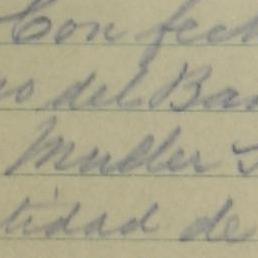 Con fech
o del Ban
Muller
tidad de